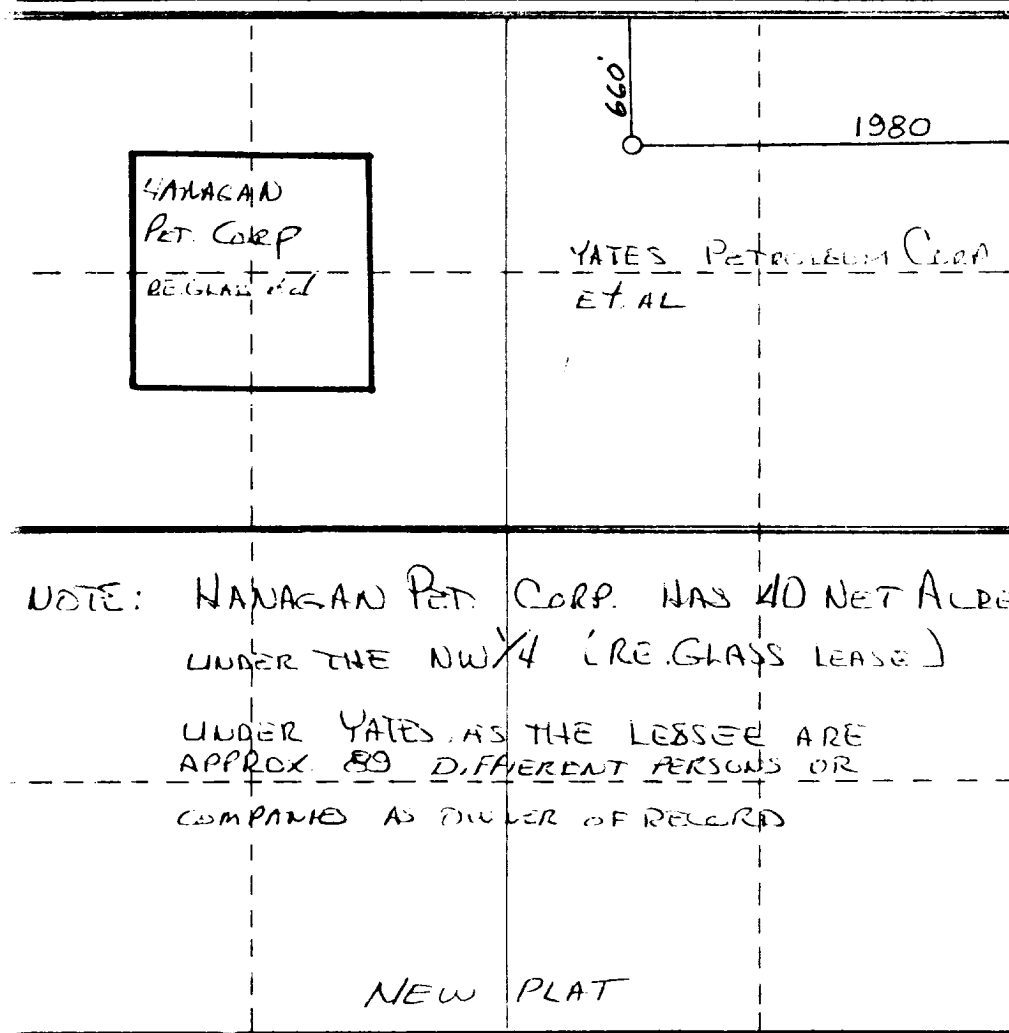 660'
1980
HANAGAN
PET. CORP
RE.GLASS
YATES PETROLEUM CORP
ET. AL
NOTE: HANAGAN PET. CORP. HAS 40 NET ACRE
UNDER THE NW 1/4 (RE.GLASS LEASE)
UNDER YATES AS THE LESSEE ARE
APPROX. 89 DIFFIERENT PERSONS OR
COMPANIES AS OWNER OF RECORD
NEW PLAT